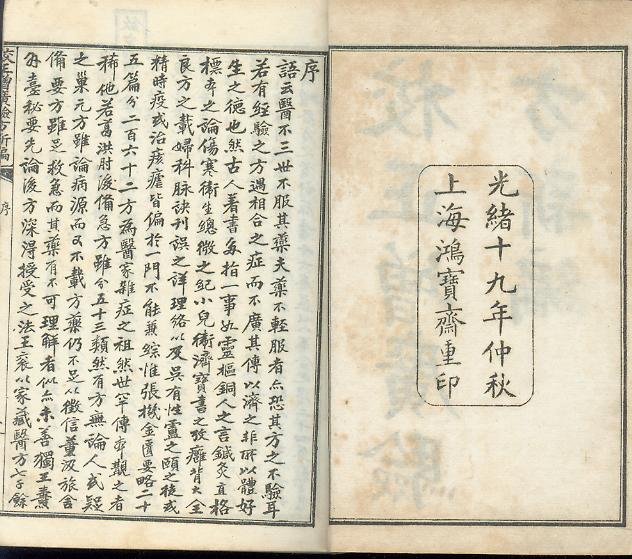 光緒十九年仲秋
上海鴻寶齋重印
序
語云醫不三世不服其藥夫藥不輕服者亦恐其方之不驗耳
若有經驗之方遇相合之症而不廣其傳以濟之非所以體好
生之德也然古人著書多指一事如靈樞銅人之言鍼灸直格
標本之論傷寒衛生總微之紀小兒衛濟寶書之攻癰背大全
良方之載婦科脉訣刊誤之詳理絡以及吳有性盧之頤之徒或
精時疫或治痎瘧皆偏於一門不能兼綜惟張機金匱要略二十
五篇分二百六十二方為醫家雜症之祖然世罕傳本觀之者
稀他若葛洪肘後備急方雖分五十三類然有方無論人或疑
之巢元方雖論病源而又不載方藥仍不足以徵信董汲旅舍
備要方雖足救急而其藥有不可理解者似亦未善獨王燾
外臺秘要先論後方深得授受之法王袞以家藏醫方七千餘
校正增廣驗方新編
序